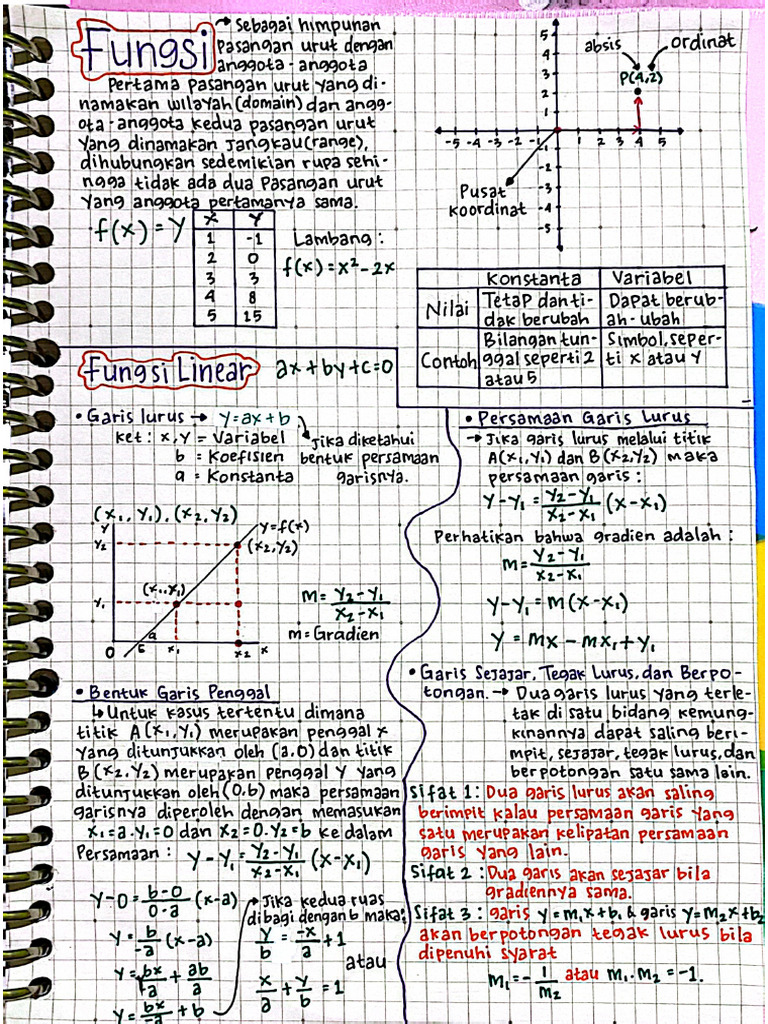 Fungsi
→ Sebagai himpunan
pasangan urut dengan
anggota-anggota
Pertama pasangan urut yang di-
namakan wilayah (domain) dan angg-
ota-anggota kedua pasangan urut
yang dinamakan jangkau(range),
dihubungkan sedemikian rupa sehi-
ngga tidak ada dua pasangan urut
yang anggota pertamanya sama.
f(x) = y
x y
1 -1
2 0
3 3
4 8
5 15
Lambang :
f(x) = x² - 2x
absis ordinat
P(4,2)
5
4
3
2
1
-5 -4 -3 -2 -1 1 2 3 4 5
-1
-2
-3
-4
-5
Pusat
koordinat
Konstanta Variabel
Nilai Tetap dan ti- Dapat berub-
dak berubah ah-ubah
Contoh Bilangan tun- Simbol, seper-
ggal seperti 2 ti x atau y
atau 5
Fungsi Linear ax + by + c = 0
• Garis lurus → y = ax + b
ket : x, y = Variabel
b = Koefisien
a = Konstanta
Jika diketahui
bentuk persamaan
garisnya.
(x₁, y₁), (x₂, y₂)
y
y = f(x)
y₂ (x₂, y₂)
(x₁, x₁)
y₁
a
0 x₁ x₂ x
m = y₂ - y₁ / x₂ - x₁
m = Gradien
• Bentuk Garis Penggal
↳ Untuk kasus tertentu dimana
titik A(x₁, y₁) merupakan penggal x
yang ditunjukkan oleh (a.0) dan titik
B(x₂, y₂) merupakan penggal y yang
ditunjukkan oleh (0.b) maka persamaan
garisnya diperoleh dengan memasukan
x₁ = a . y₁ = 0 dan x₂ = 0 . y₂ = b ke dalam
Persamaan : y - y₁ = y₂ - y₁ / x₂ - x₁ (x - x₁)
y - 0 = b - 0 / 0 - a (x - a)
y = b / -a (x - a)
y = bx / -a + ab / a
y = bx / -a + b
→ Jika kedua ruas
dibagi dengan b maka:
y / b = -x / a + 1
atau
x / a + y / b = 1
• Persamaan Garis Lurus
→ Jika garis lurus melalui titik
A(x₁, y₁) dan B(x₂, y₂) maka
persamaan garis :
y - y₁ = y₂ - y₁ / x₂ - x₁ (x - x₁)
Perhatikan bahwa gradien adalah :
m = y₂ - y₁ / x₂ - x₁
y - y₁ = m(x - x₁)
y = mx - mx₁ + y₁
• Garis Sejajar, Tegak Lurus, dan Berpo-
tongan. → Dua garis lurus yang terle-
tak di satu bidang kemung-
kinannya dapat saling beri-
mpit, sejajar, tegak lurus, dan
berpotongan satu sama lain.
Sifat 1 : Dua garis lurus akan saling
berimpit kalau persamaan garis yang
satu merupakan kelipatan persamaan
garis yang lain.
Sifat 2 : Dua garis akan sejajar bila
gradiennya sama.
Sifat 3 : garis y = m₁x + b₁ & garis y = m₂x + b₂
akan berpotongan tegak lurus bila
dipenuhi syarat
m₁ = - 1 / m₂ atau m₁ . m₂ = -1.